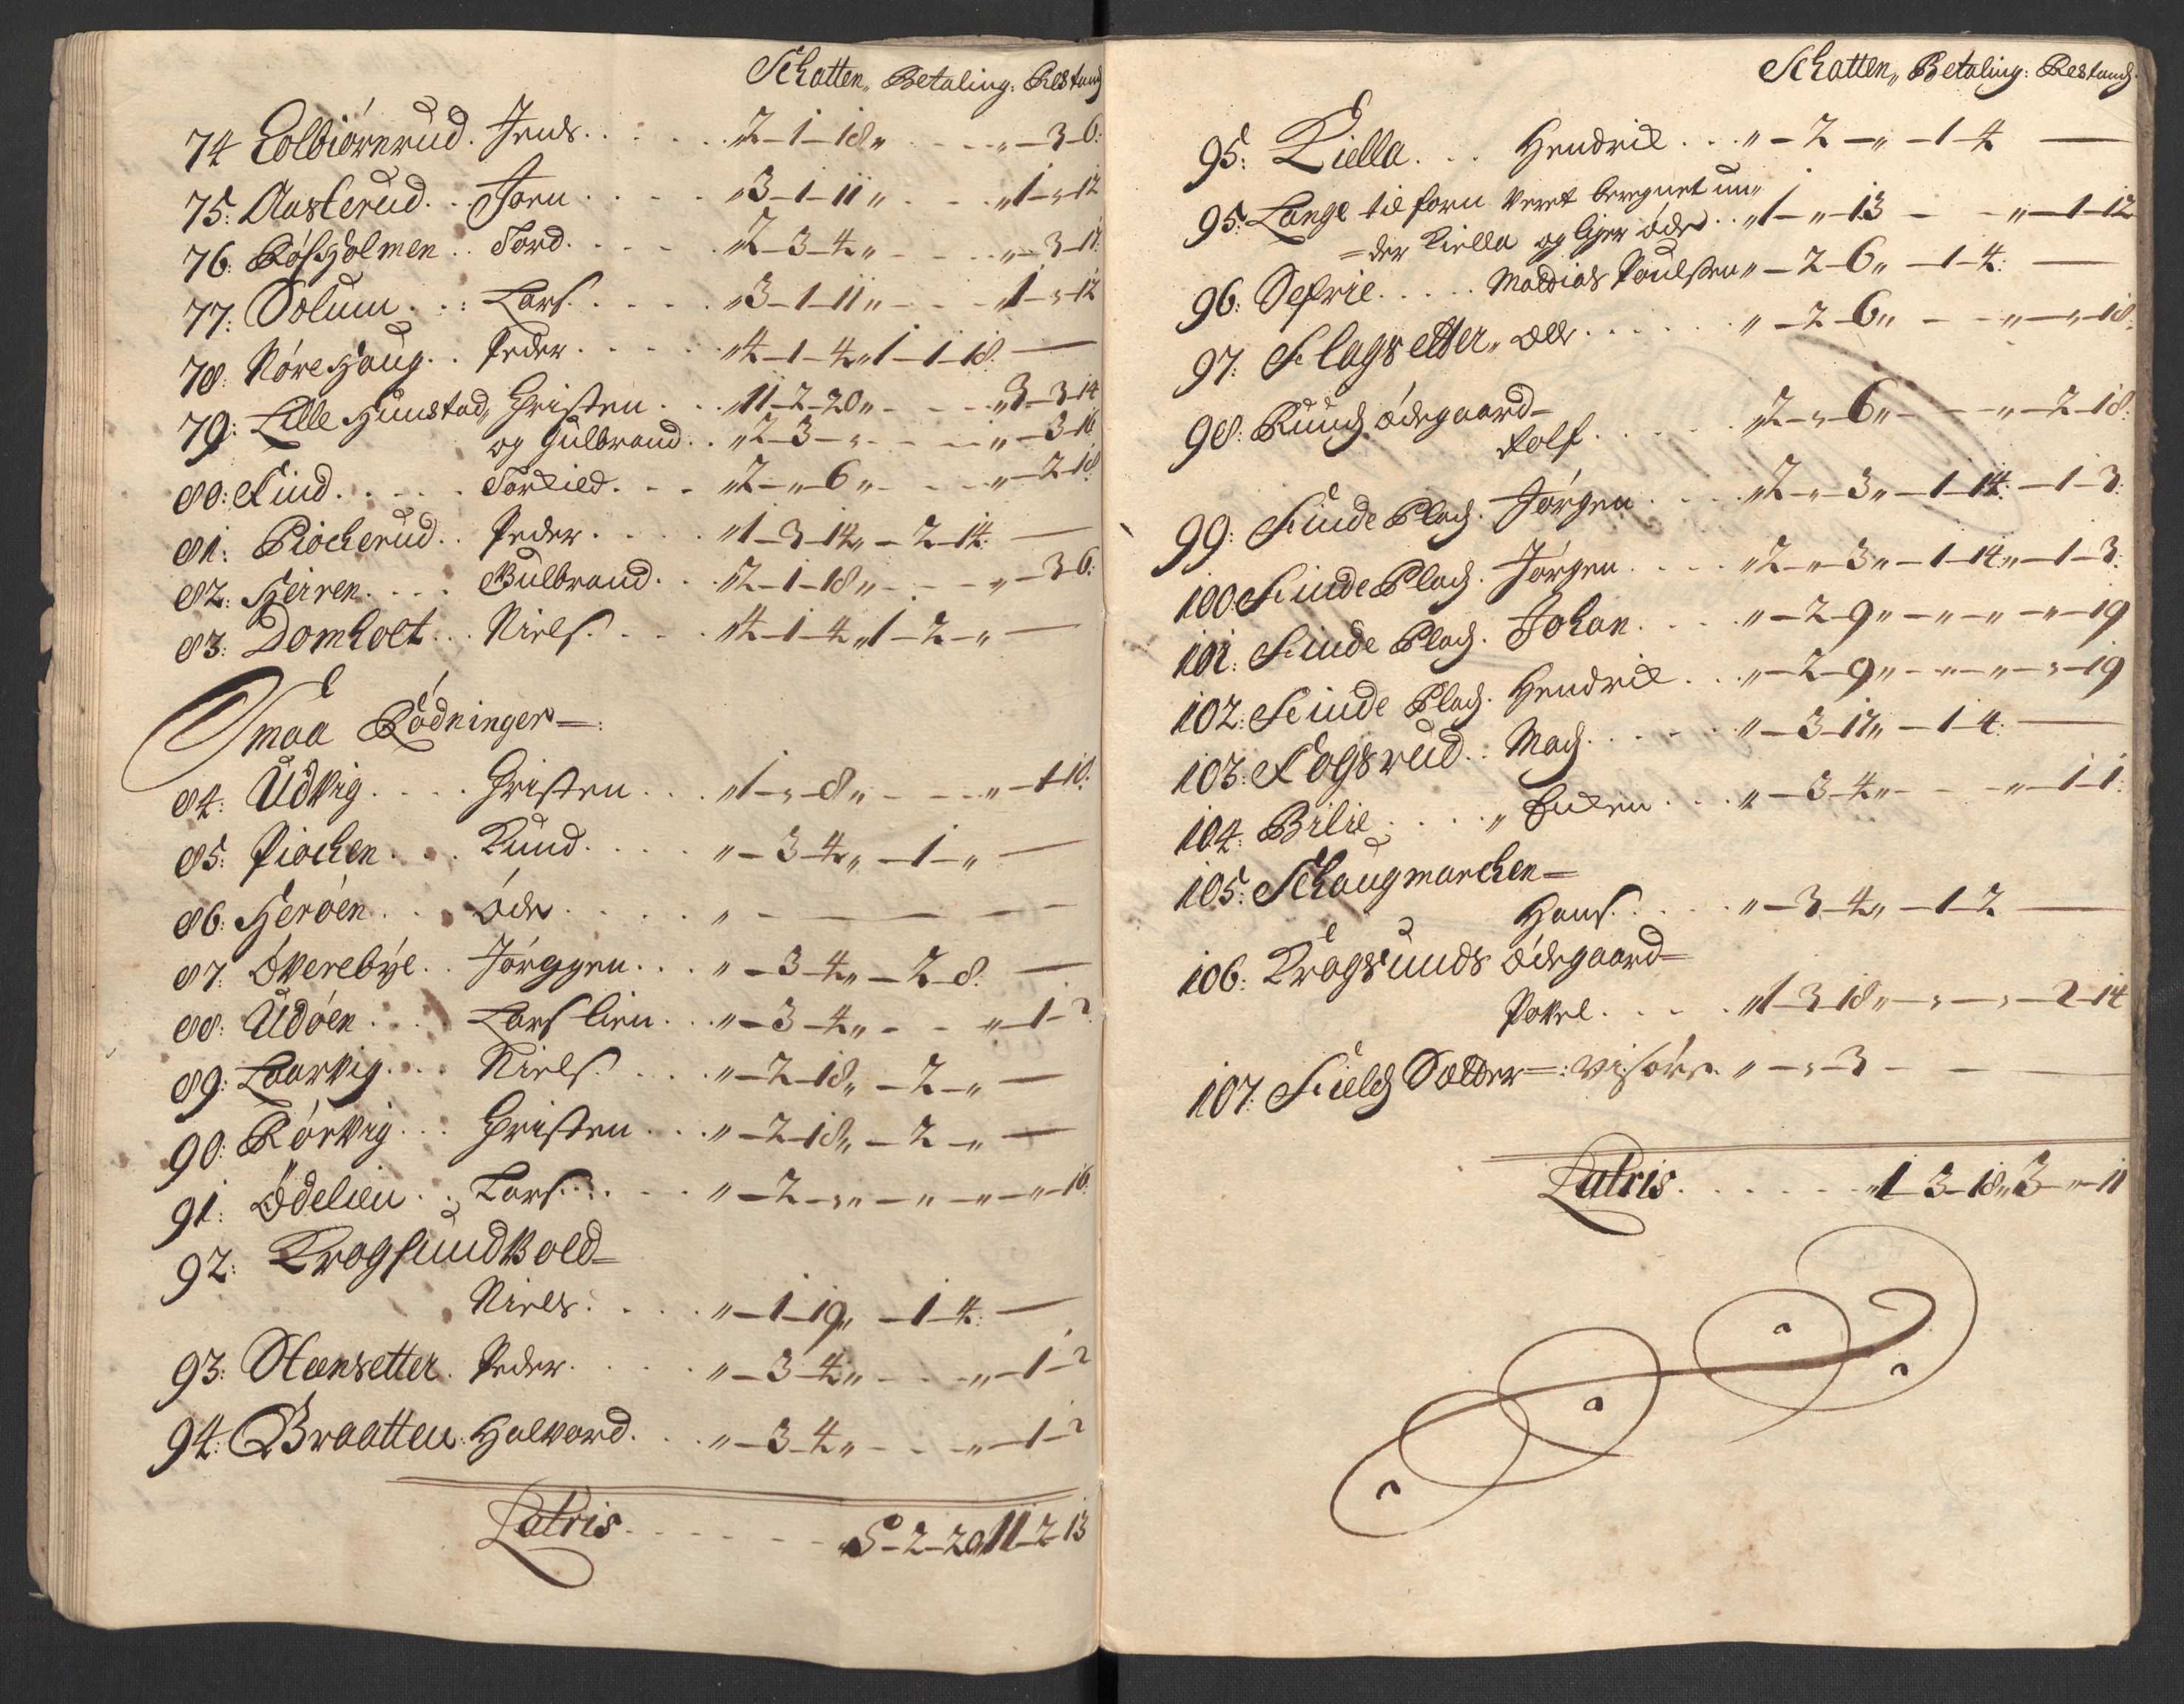 Schatten„ Betaling: Restand
74 Colbiörnrud. Jens. . . . „2-1-18„ . - - „-3-6:
75: Aasterud. . Jorn . . . . „3-1-11„ . - - „1-„-12
76: Røsholmen . . Tord. . . . . „2-3-4„ - . - „-3-17
77: Solum . . : Lars. . . . . „3-1-11„ - - . „1-„-12
78: Nørehaug. . Peder . . . . „4-1-4„ 1-1-18. —
79: Lille Hunstad„ Christen . . „11-2-20„ - . - - „3-3-14
og Gulbrand. . „2-3-„- . - - „-3-16
80: Lind. . . . . Torkild. . . „2-„-6„ - . - - „-2-18
81: Piocherud. . Peder . . . . „1-3-14„ -2-14: —
82: Heiren. . . . Gulbrand. . „2-1-18„ - . - - „-3-6:
83: Domholt. . . Niels. . . . „4-1-4„ 1-2-„ —
Smaa Rödninger=:
84: Udvig. . . . Christen . . . „1-„-8„ - - - „-1-10.
85: Piochen . . . Knud. . . . . „-3-4„ -1-„ —
86: Herøen. . . øde . . . . . „ - — — — —
87: Øverebye. . Jørggen. . . „-3-4„ -2-8. —
88: Udøen . . . Lars lien. . . „-3-4„ - - „-1-2
89: Laarvig. . . Niels. . . . „-2-18„ -2-„ —
90: Rørvig. . . Christen . . . „-2-18„ -2-„ —
91: Ødelien . . Lars. . . . . „-2-„„ -„-„-„-16.
92: Krogsundvold=
Niels. . . . . „-1-19„ -1-4: —
93: Steensetter. Peder. . . . . „-3-4„ - . - „-1-2
94: Braatten: Halvord. . . „-3-4„ - . - „-1-2
Latris . - - - - - - „5-2-20„11-2-13
Schatten„ Betaling: Restand.
95: Kiella. . . Hendrik . . . „-2-„ -1-4 —
95: Lange til forn veret beregnet un„
=der Kiella og liger øde . . „1-„-13 - - „-1-12
96: Sefrie. . . . . Mattias Poulsen „-2-6„ -1-4: —
97: Slagsetter„ Ole . . . . . . „-2-6„ - - „-„-18.
98: Rund ødegaard=
Rolf . . . . . . „2-„-6„ - - - „-2-18:
99: Skinde Plads. Jørgen . . . „2-„-3„ -1-14: -1-3:
100: Skinde Plads. Jørgen . . . . „2-„-3„ -1-14„ -1-3:
101: Skinde Plads. Johan. . . . „-2-9„ -„-„-„-19
102: Skinde Plads. Hendrik . . „-2-9„ -„-„-„-19
103: Fogsrud. : Mads. . . . . „-3-17„ -1-4: —
104: Bilie . . . . „ Enken . . . „-3-4„ - - „-1-1:
105: Schaugmarchen=
Hans. . . . . „-3-4„ -1-2 —
106: Krogsunds ødegaard=
Povel. . . . . „1-3-18„ -„-„-2-14
107: Field Sætter=: „-„-3 - - —
Latris. . . . . . . „1-3-18„3-„-11